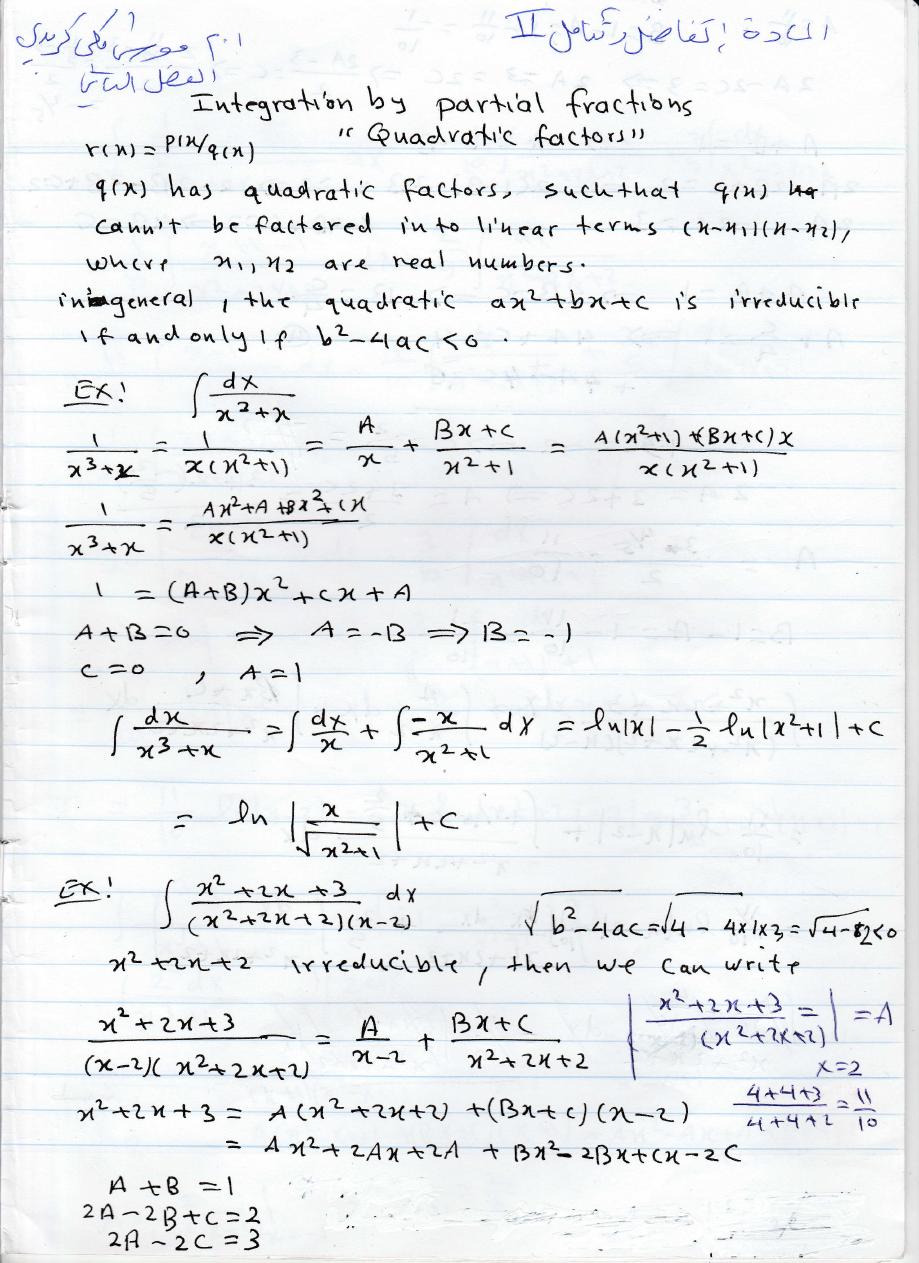 المادة : تفاضل وتكامل II
أ.د. موسى مكي كريدي
الفصل الثاني
Integration by partial fractions
"Quadratic factors"
r(x) = P(x)/q(x)
q(x) has quadratic factors, such that q(x)
cann't be factored into linear terms (x-x₁)(x-x₂),
where x₁, x₂ are real numbers.
in general, the quadratic ax²+bx+c is irreducible
If and only If b²-4ac<0.
EX! ∫ dx/(x²+x)
1/(x³+x) = 1/(x(x²+1)) = A/x + (Bx+c)/(x²+1) = (A(x²+1)+(Bx+c)x)/(x(x²+1))
1/(x³+x) = (Ax²+A+Bx²+cx)/(x(x²+1))
1 = (A+B)x²+cx+A
A+B=0 ⇒ A=-B ⇒ B=-1
C=0 , A=1
∫ dx/(x³+x) = ∫ dx/x + ∫ -x/(x²+1) dx = ln|x| - 1/2 ln|x²+1| + c
= ln |x/√(x²+1)| + c
EX! ∫ (x²+2x+3)/((x²+2x+2)(x-2)) dx
√(b²-4ac) = √(4-4x1x3) = √(4-12)<0
x²+2x+2 irreducible, then we can write
(x²+2x+3)/((x-2)(x²+2x+2)) = A/(x-2) + (Bx+C)/(x²+2x+2)
| (x²+2x+3)/(x²+2x+2) = | = A
x=2
x²+2x+3 = A(x²+2x+2) + (Bx+c)(x-2)
(4+4+3)/(4+4+2) = 11/10
= Ax²+2Ax+2A + Bx²-2Bx+cx-2C
A+B=1
2A-2B+c=2
2A-2C=3